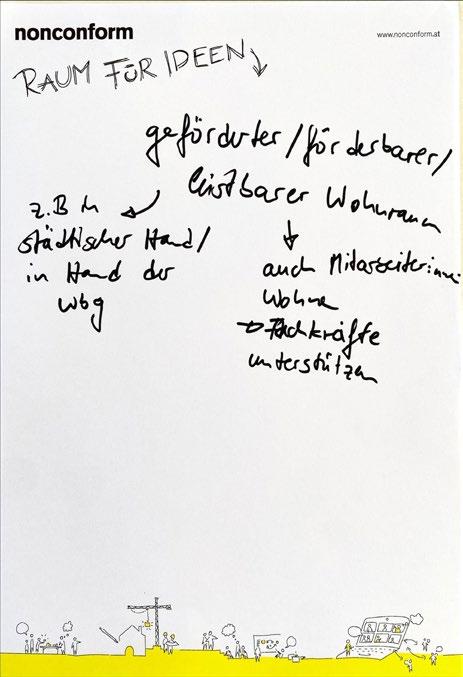 nonconform
www.nonconform.at
RAUM FÜR IDEEN
geförderter/förderbarer/
leistbarer Wohnraum
z.B in
städtischer Hand/
in Hand der
wbg
auch Mitarbeiterinnen
Wohnen
Fachkräfte
unterstützen